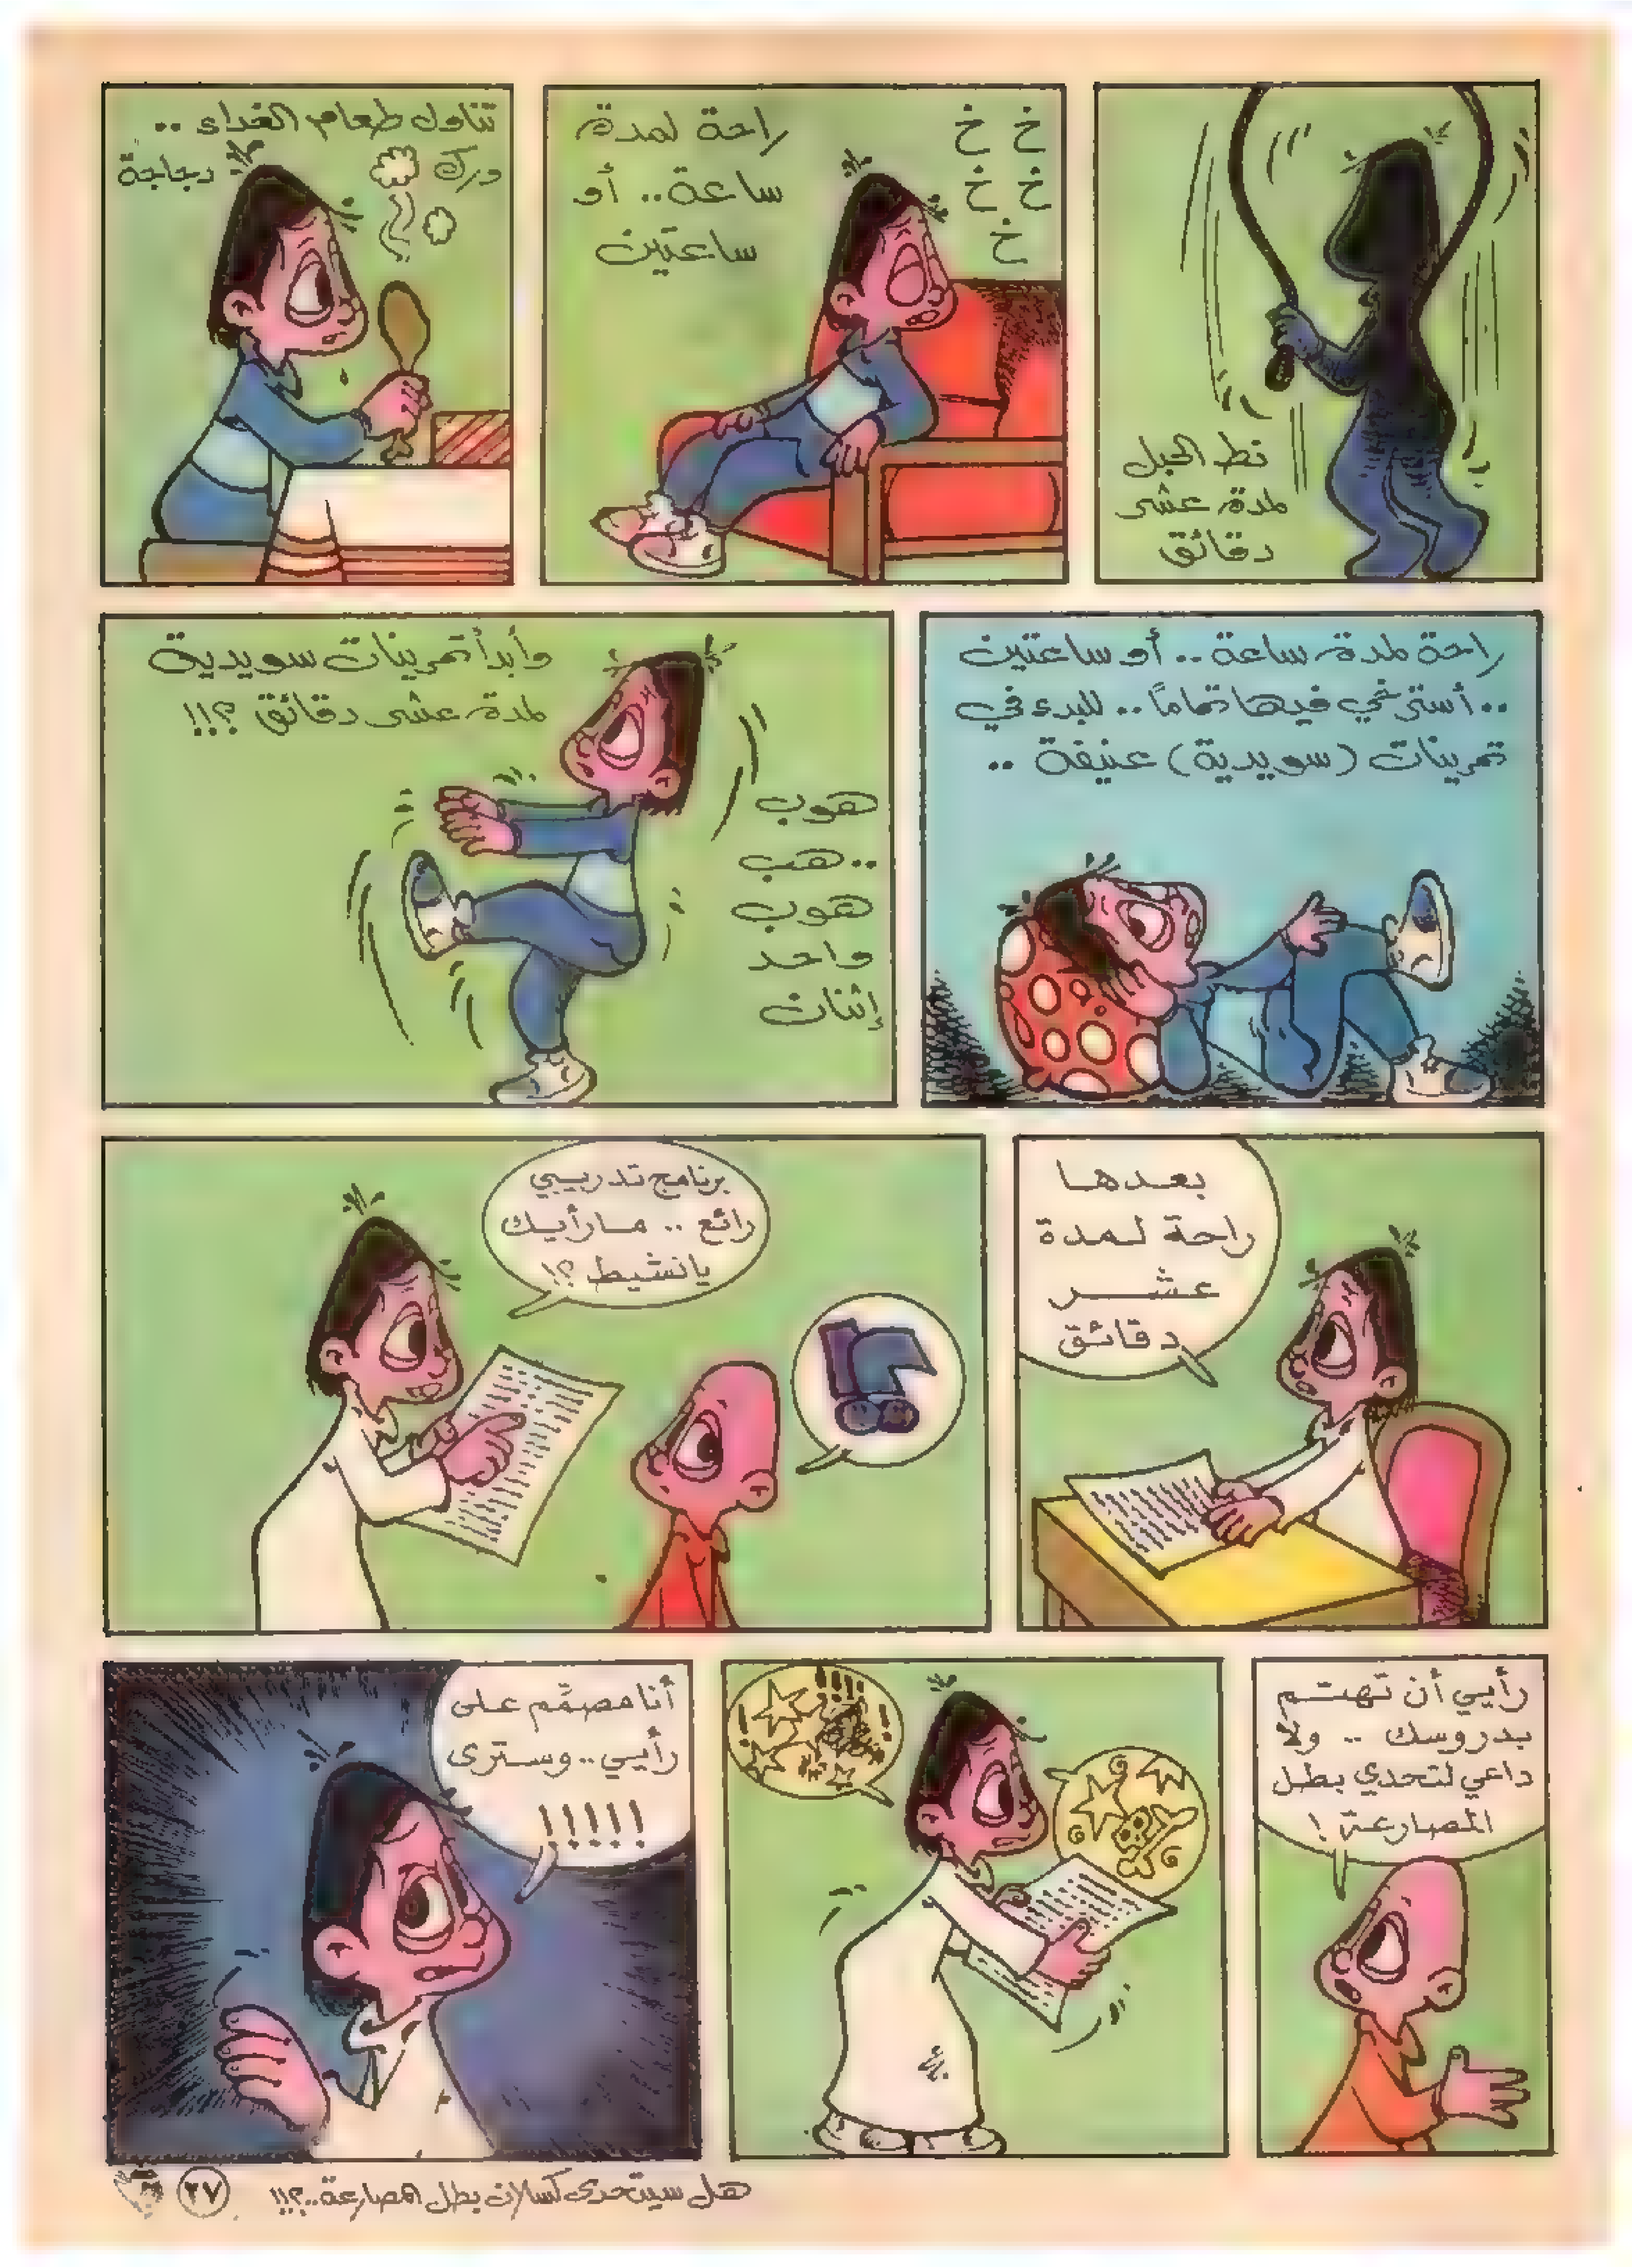 نط الحبل
لمدة عشر
دقائق
خ خ
خ خ
خ
راحة لمدة
ساعة.. أو
ساعتين
تناول طعام الغداء ..
ورك دجاجة
راحة لمدة ساعة .. أو ساعتين
.. أسترخي فيها تماماً .. للبدء في
تمرينات (سويدية) عنيفة ..
وأبدأ تمرينات سويدية
لمدة عشر دقائق ؟!!
هوب
..هب
هوب
واحد
إثنان
بعدها
راحة لمدة
عشر
دقائق
برنامج تدريبي
رائع .. ما رأيك
يانشيط ؟!
رأيي أن تهتم
بدروسك .. ولا
داعي لتحدي بطل
المصارعة !
!!!!
أنا مصمّم على
رأيي.. وسترى
!!!!!
هل سيتحدى كسلان بطل المصارعة..؟!!
٢٧